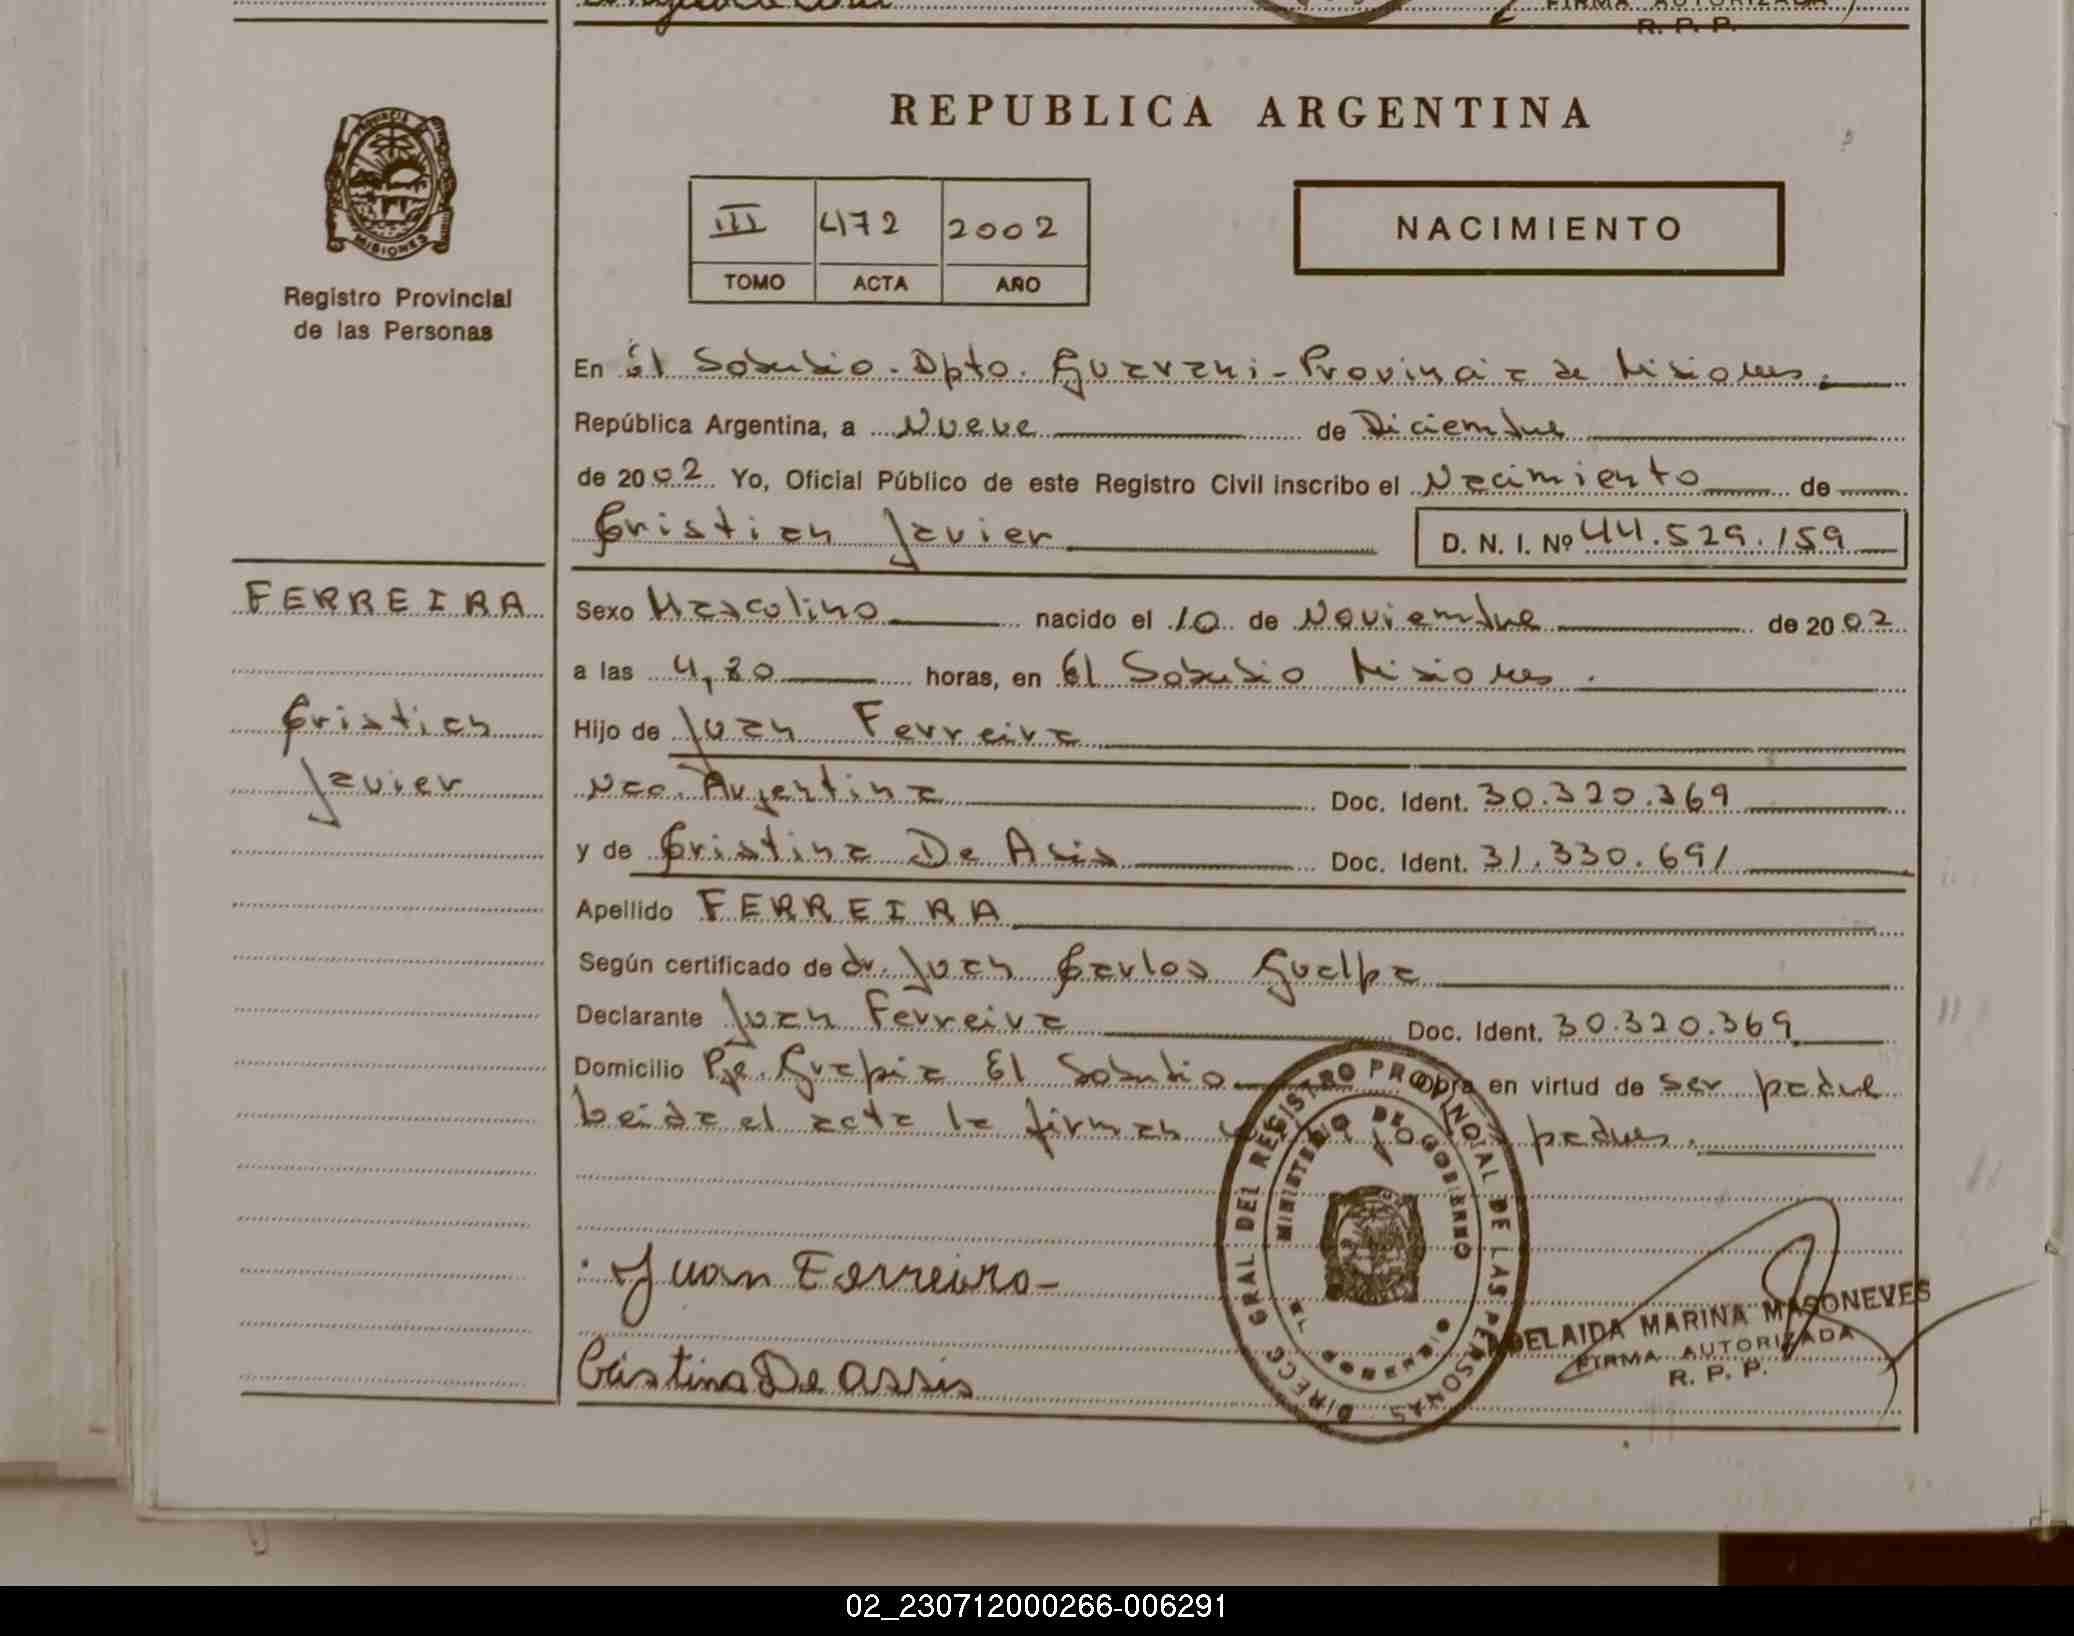 FIRMA AUTORIZADA
R. P. P.
REPUBLICA ARGENTINA
PROVINCIA DE MISIONES
III 472 2002
TOMO ACTA AÑO
NACIMIENTO
Registro Provincial
de las Personas
En El Soberbio - Dpto. Guarani - Provincia de Misiones.
República Argentina, a Nueve de Diciembre
de 2002 Yo, Oficial Público de este Registro Civil inscribo el Nacimiento de
Cristian Javier D. N. I. Nº 44.529.159
FERREIRA
Cristian
Javier
Sexo Masculino nacido el 10 de Noviembre de 2002
a las 4,30 horas, en El Soberbio Misiones.
Hijo de Juan Ferreira
Nac. Argentina Doc. Ident. 30.320.369
y de Cristina De Asis Doc. Ident. 31.330.691
Apellido FERREIRA
Según certificado de dr. Juan Carlos Gualpa
Declarante Juan Ferreira Doc. Ident. 30.320.369
Domicilio Pje. Guapia El Soberbio Obra en virtud de ser padre
Leida el acta la firman padres.
DIRECC GRAL DEL REGISTRO PROVINCIAL DE LAS PERSONAS
MINISTERIO DE GOBIERNO
EL SOBERBIO
Juan Ferreira-
Cristina De assis
ADELAIDA MARINA MASONEVES
FIRMA AUTORIZADA
R. P. P.
02_230712000266-006291